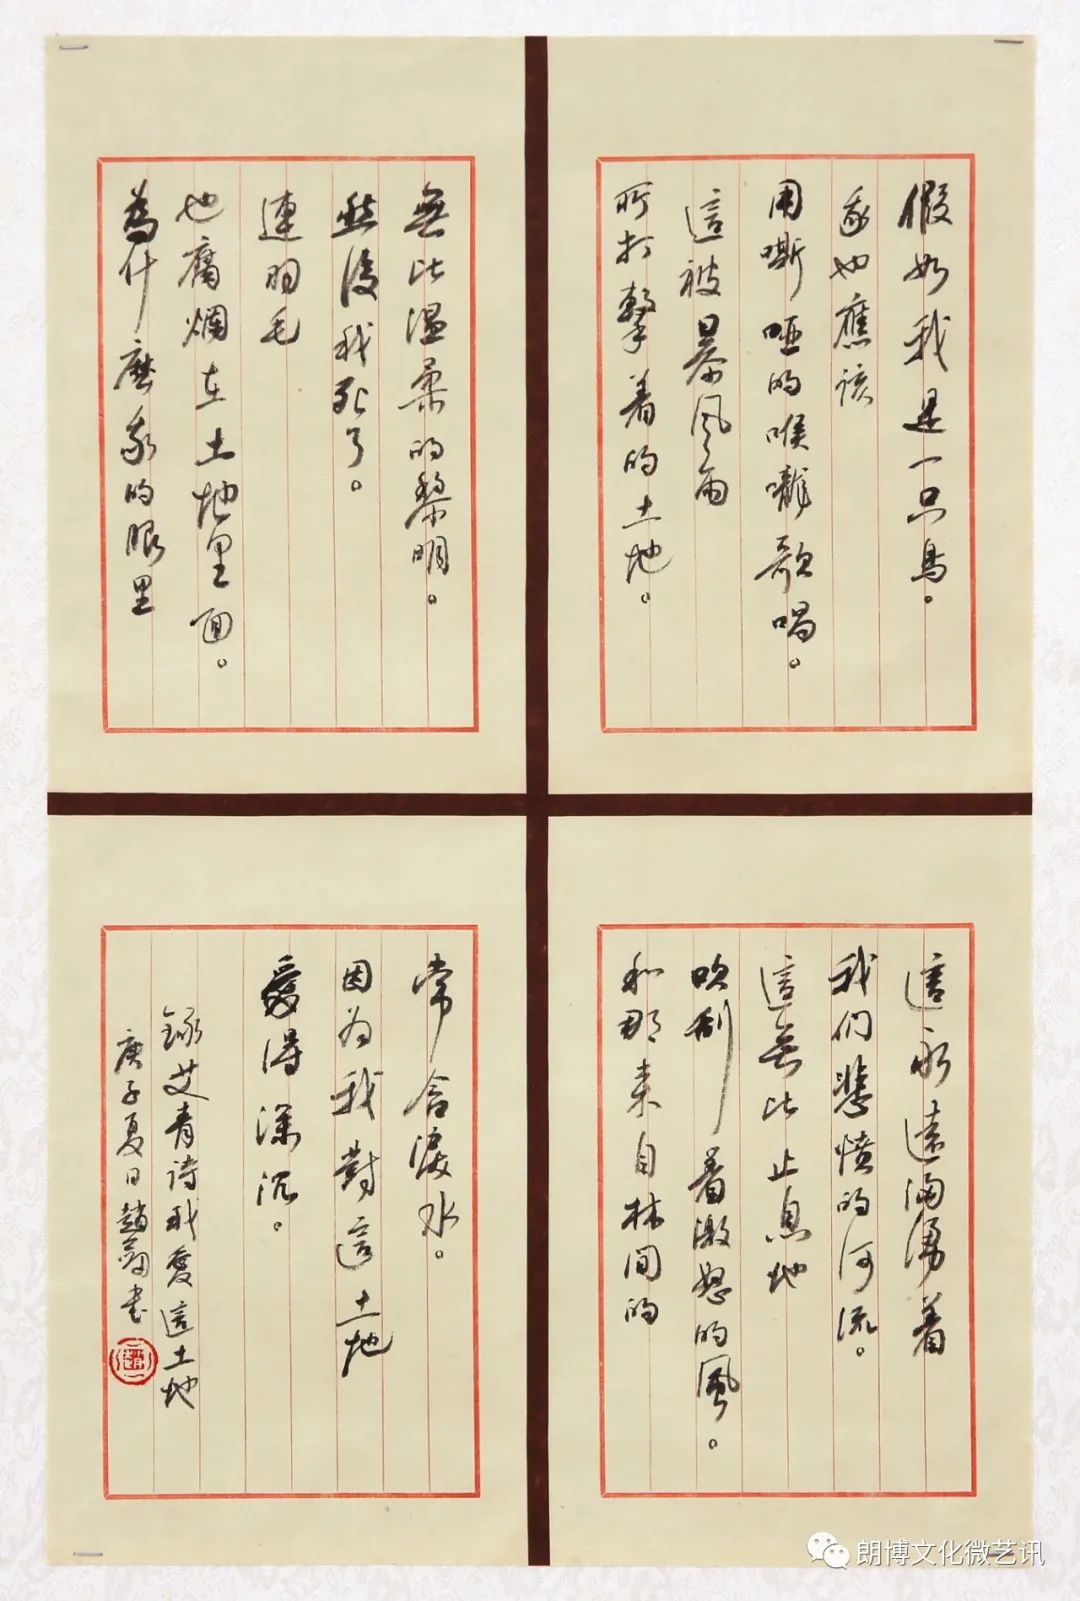 假如我是一只鳥。
我也應該
用嘶啞的喉嚨歌唱。
這被暴风雨
所打擊着的土地。
這永遠汹湧着
我们悲憤的河流。
這無比止息地
吹刮着激怒的風。
和那来自林间的
無比温柔的黎明。
然後我死了。
連羽毛
也腐爛在土地里面。
為什麽我的眼里
常含淚水。
因为我對這土地
愛得深沉。
録艾青詩我愛這土地
庚子夏日趙书
朗博文化微艺讯